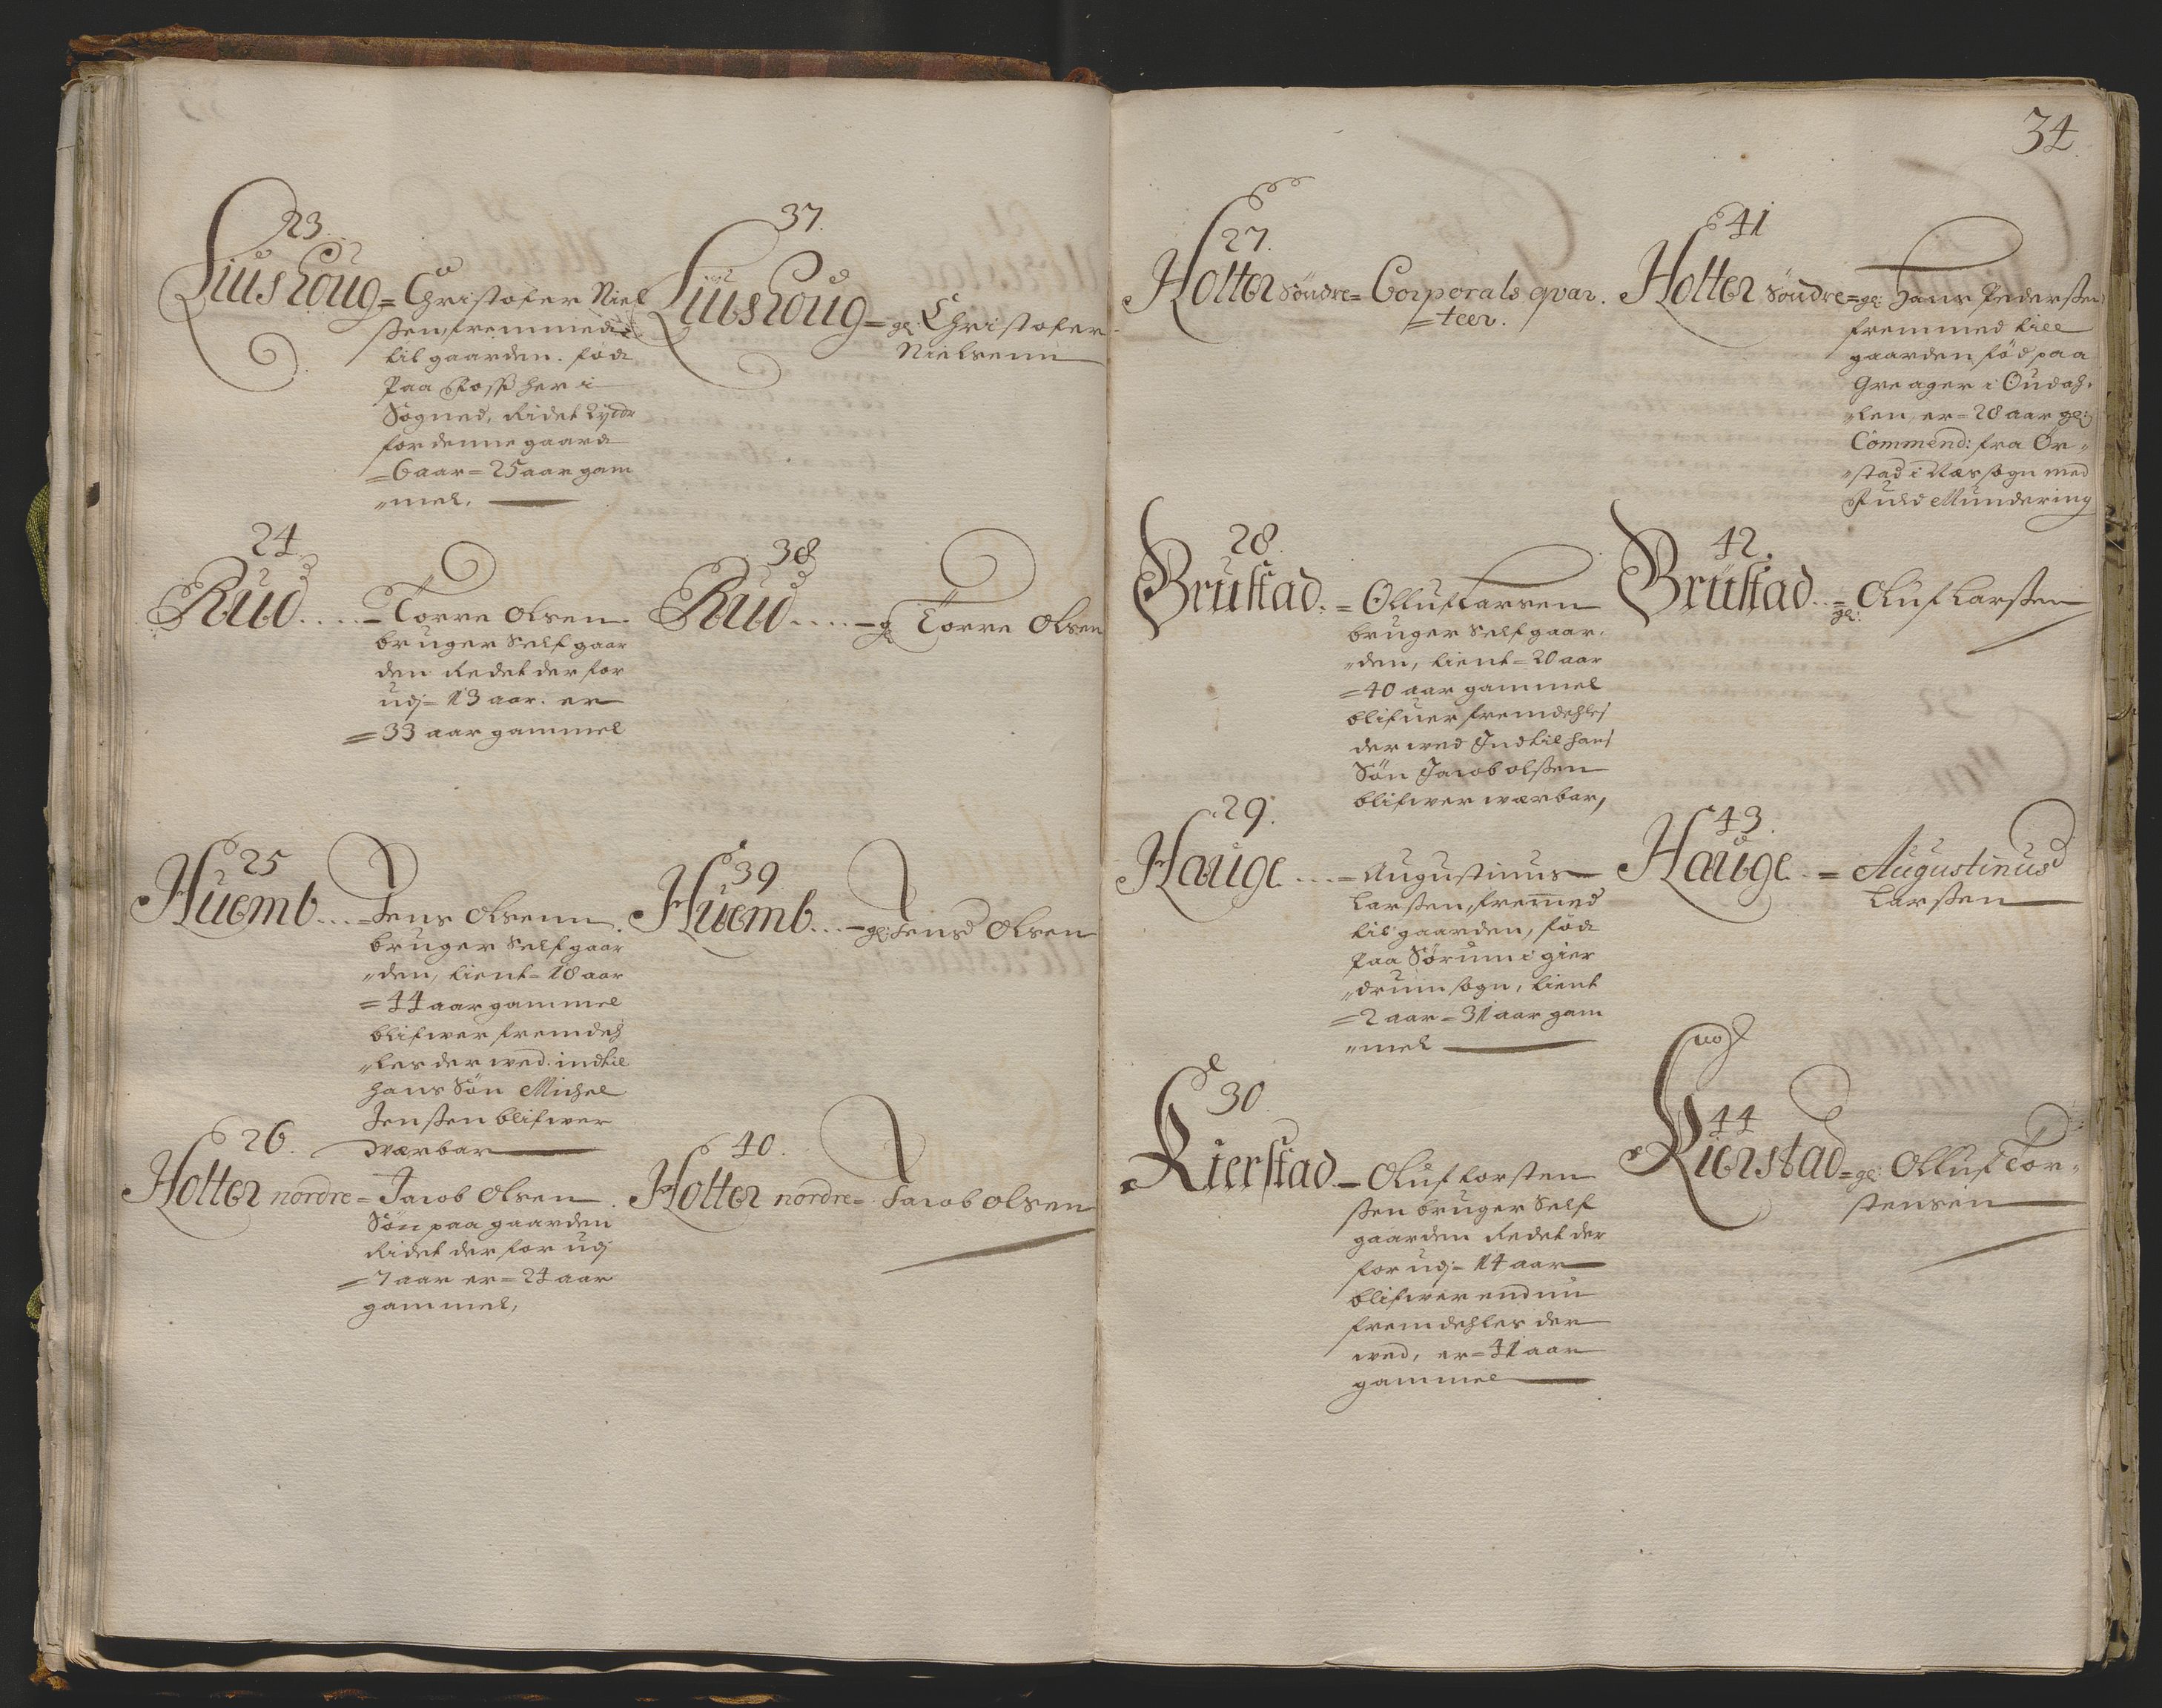 23.
Liushoug = Christofer Niel
ssen, fremmed
til gaarden. föd
Paa Foss her i
Sogned, Ridet
for denne gaard
= 6 aar = 25 aar gam
"mel.
37.
Liushoug = gl: Christofer
Nielsenn
24
Rud ..... = Torre Olsen
bruger Self gaar
den Redet der for
udj = 13 aar. er
= 33 aar gammel
38
Rud ..... = gl Torre Olsen
25
Huemb ... = Jens Olsenn
bruger Self gaar
"den, tient = 18 aar
= 44 aar gammel
blifwer fremdeh
"les der wed. indtil
hans Sön Michel
Jenssen blifwer
wærbar
39
Huemb .... = gl: Jens Olsen
26.
Holter nordre = Jacob Olsen
Sön paa gaarden
Ridet der for udj
= 7 aar er = 24 aar
gammel,
40.
Holter nordre = Jacob Olsen
34
27.
Holter Söndre = Corporals qvar.
= teer.
41
Holter Söndre = gl: Hans Pederssen
fremmed till
gaarden föd paa
Greager i Oudah.
"len, er = 28 aar gl:
Commend: fra Ör"
"stad i Næs sogn med
Fuld Mundering
28.
Brustad. = Olluf Larsen
bruger Self gaar.
"den, tient = 20 aar
= 40 aar gammel
blifuer fremdehles
der wed Indtil hans
Sön Jacob olssen
blifwer wærbar,
42.
Brustad .. = gl: Oluf Larssen
29.
Hauge ... = Augustinus
Larssen, fremmed
til gaarden, föd
Paa Sörum i gier
"drum sogn, tient
= 2 aar = 31 aar gam
"mel
43.
Hauge .. = Augustinus
Larssen
30.
Kierstad = Oluf Torsten
ssen bruger Self
gaarden Redet der
for udj = 14 aar
blifwer endnu
fremdehles der
wed, er = 41 aar
gammel
44
Kierstad = gl: Olluf Tor"
stensen